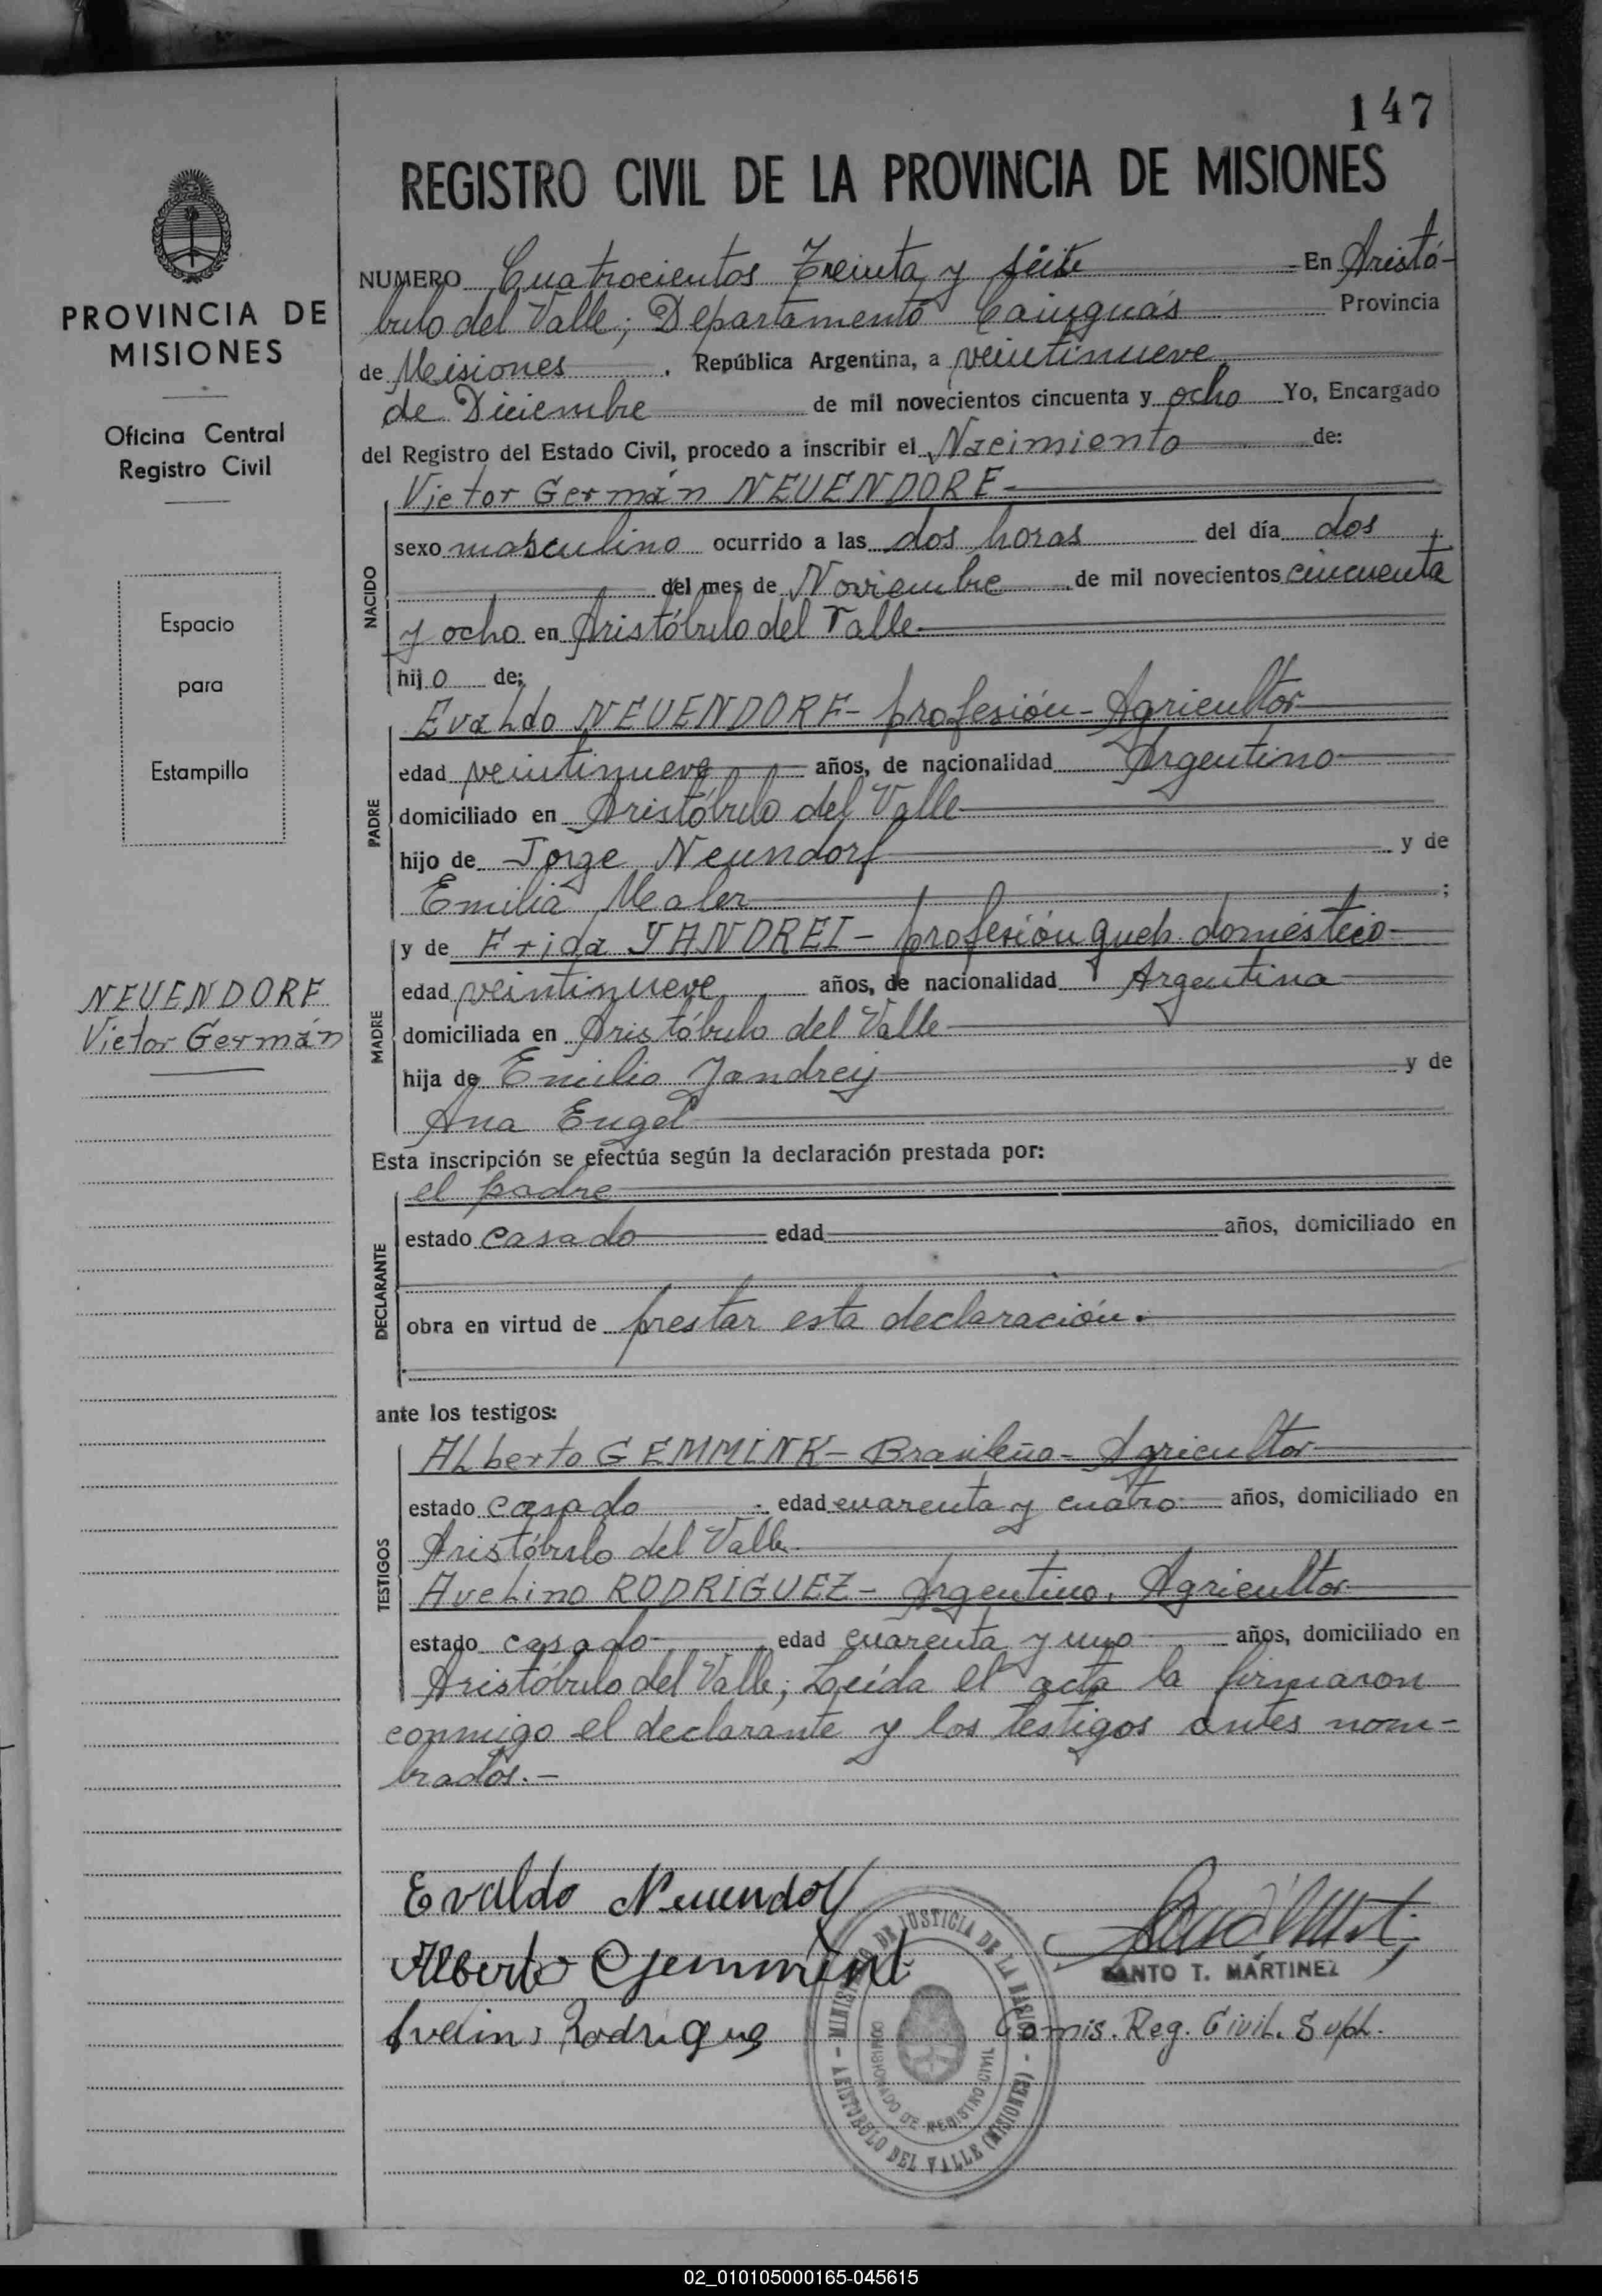 147
REGISTRO CIVIL DE LA PROVINCIA DE MISIONES
PROVINCIA DE
MISIONES
Oficina Central
Registro Civil
Espacio
para
Estampilla
NEUENDORF
Victor Germán
NUMERO Cuatrocientos Treinta y siete En Aristó-
bulo del Valle; Departamento Cainguás Provincia
de Misiones. República Argentina, a veintinueve
de Diciembre de mil novecientos cincuenta y ocho Yo, Encargado
del Registro del Estado Civil, procedo a inscribir el Nacimiento de:
NACIDO
Victor Germán NEUENDORF
sexo masculino ocurrido a las dos horas del día dos
del mes de Noviembre de mil novecientos cincuenta
y ocho en Aristóbulo del Valle
hijo de;
PADRE
Evaldo NEUENDORF- profesión- Agricultor
edad veintinueve años, de nacionalidad Argentino
domiciliado en Aristóbulo del Valle
hijo de Jorge Neundorf y de
Emilia Mealer;
MADRE
y de Frida YANDREI- profesión queh. doméstico-
edad veintinueve años, de nacionalidad Argentina
domiciliada en Aristóbulo del Valle
hija de Emilio Jandrey y de
Ana Engel
Esta inscripción se efectúa según la declaración prestada por:
DECLARANTE
el padre
estado casado edad años, domiciliado en
obra en virtud de prestar esta declaración.
ante los testigos:
TESTIGOS
Alberto GEMMINK- Brasileño- Agricultor
estado casado. edad cuarenta y cuatro años, domiciliado en
Aristóbulo del Valle
Avelino RODRIGUEZ- Argentino. Agricultor
estado casado edad cuarenta y uno años, domiciliado en
Aristóbulo del Valle; Leída el acta la firmaron
conmigo el declarante y los testigos antes nom-
brados.-
Evaldo Neuendorf
Alberto Gemmink
Avelino Rodrigue
SANTO T. MARTINEZ
Comis. Reg. Civil. Supl.
MINISTERIO DE JUSTICIA DE LA NACION
COMISIONADO DE REGISTRO CIVIL
ARISTOBULO DEL VALLE (MISIONES)
02_010105000165-045615